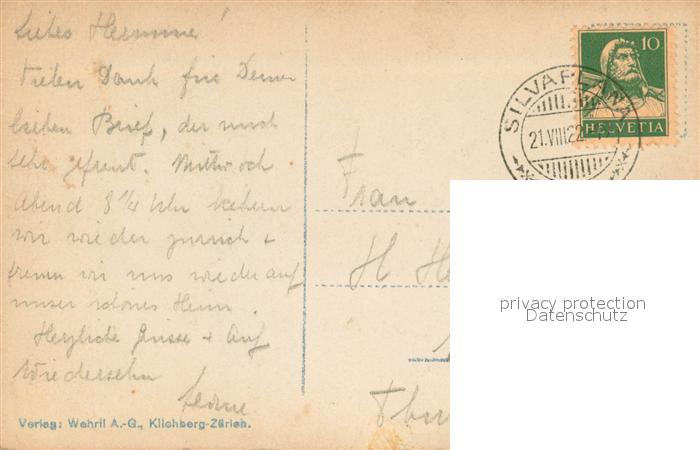 Liebes Hermine!
Vielen Dank für Deinen
lieben Brief, der mich
sehr gefreut. Mittwoch
Abend 8 1/4 Uhr kehren
wir wieder zurück +
freuen wir uns wieder auf
unser schönes Heim.
Herzliche Grüsse + Auf
Wiedersehn
Verlag: Wehrli A.-G., Kilchberg-Zürich.
10
HELVETIA
SILVAPLANA
21.VIII.22
Frau
H. He
Thur
privacy protection
Datenschutz